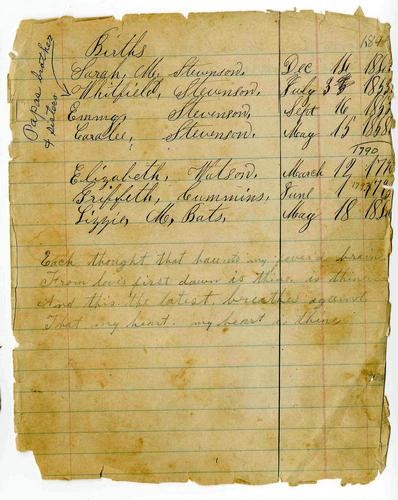 Births
Papas brother
& sisters
Sarah, M, Stevenson, Dec 14
Whitfield, Stevenson, July
Emma, Stevenson, Sept 16
Coralee, Stevenson, May 15
1790
Elizabeth, Watson, March 12
Griffeth, Cummins, June 1
Lizzie M, Bats, May 18
Each thought that haunts my brain
From loves first dawn is thine is thine
And this the latest, breathes against
That my heart. my heart is thine